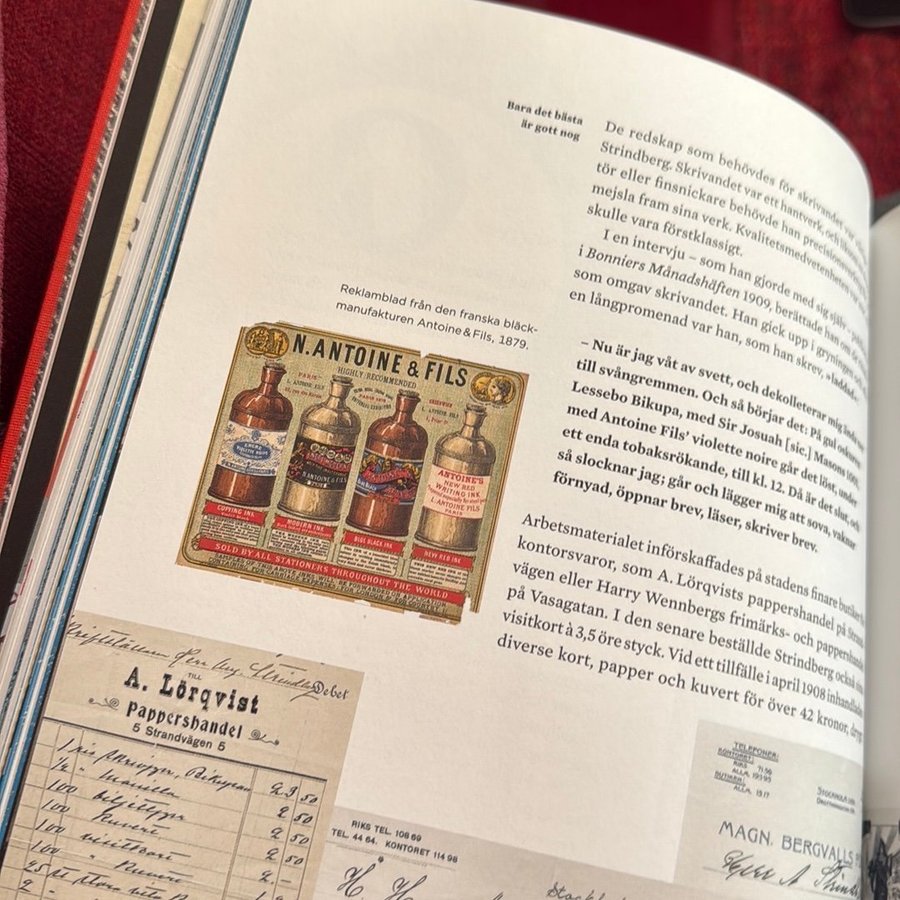 Bara det bästa
är gott nog
De redskap som behövdes för skrivandet var
Strindberg. Skrivandet var ett hantverk, och
tör eller finsnickare behövde han
mejsla fram sina verk. Kvalitetsmedvetenheten var
skulle vara förstklassigt.
I en intervju – som han gjorde med sig själv –
i Bonniers Månadshäften 1909, berättade han om
som omgav skrivandet. Han gick upp i gryningen och
en långpromenad var han, som han skrev, »laddad«.
– Nu är jag våt av svett, och dekolleterar mig ända
till svångremmen. Och så börjar det: På gul oskuren
Lessebo Bikupa, med Sir Josuah [sic.] Masons 1001,
med Antoine Fils’ violette noire går det löst, under
ett enda tobaksrökande, till kl. 12. Då är det slut, och
så slocknar jag; går och lägger mig att sova, vaknar
förnyad, öppnar brev, läser, skriver brev.
Arbetsmaterialet införskaffades på stadens finare
kontorsvaror, som A. Lörqvists pappershandel på
vägen eller Harry Wennbergs frimärks- och pappershandel
på Vasagatan. I den senare beställde Strindberg också
visitkort à 3,5 öre styck. Vid ett tillfälle i april 1908 inhandlade
diverse kort, papper och kuvert för över 42 kronor,
Reklamblad från den franska bläck-
manufakturen Antoine & Fils, 1879.
N. ANTOINE & FILS
HIGHLY RECOMMENDED
PARIS
L. ANTOINE FILS
ENCRE
VIOLETTE NOIRE
ANTOINE'S
NEW RED
WRITING INK
L. ANTOINE FILS
PARIS
COPYING INK
MODERN INK
BLUE BLACK INK
NEW RED INK
SOLD BY ALL STATIONERS THROUGHOUT THE WORLD
Debet
TILL
A. Lörqvist
pappershandel
5 Strandvägen 5
1 ris 23 50
1/2 " 2 50
100 2 50
100 Kuvert 2 50
100 visitkort 2 –
100 " Kuvert
25
2 "
RIKS TEL. 108 69
TEL. 44 64. KONTORET 114 98
H. H.
Stockholm
TELEFONER:
KONTORET:
RIKS 71 56
ALLM. 193 95
BUTIKEN:
ALLM. 19 17
STOCKHOLM
MAGN. BERGVALLS
Herr A